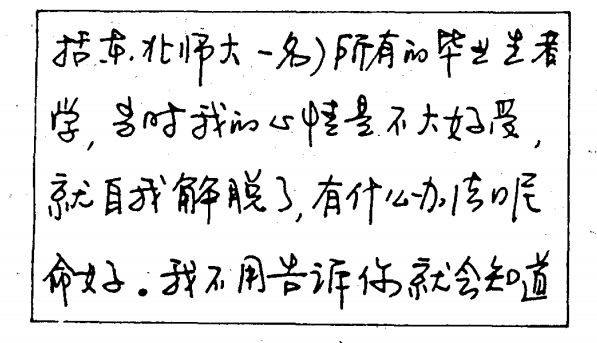 括东北师大一名)所有的毕业生者
学,当时我的心情是不大好受,
就自我解脱了,有什么办法呢
命好。我不用告诉你就会知道